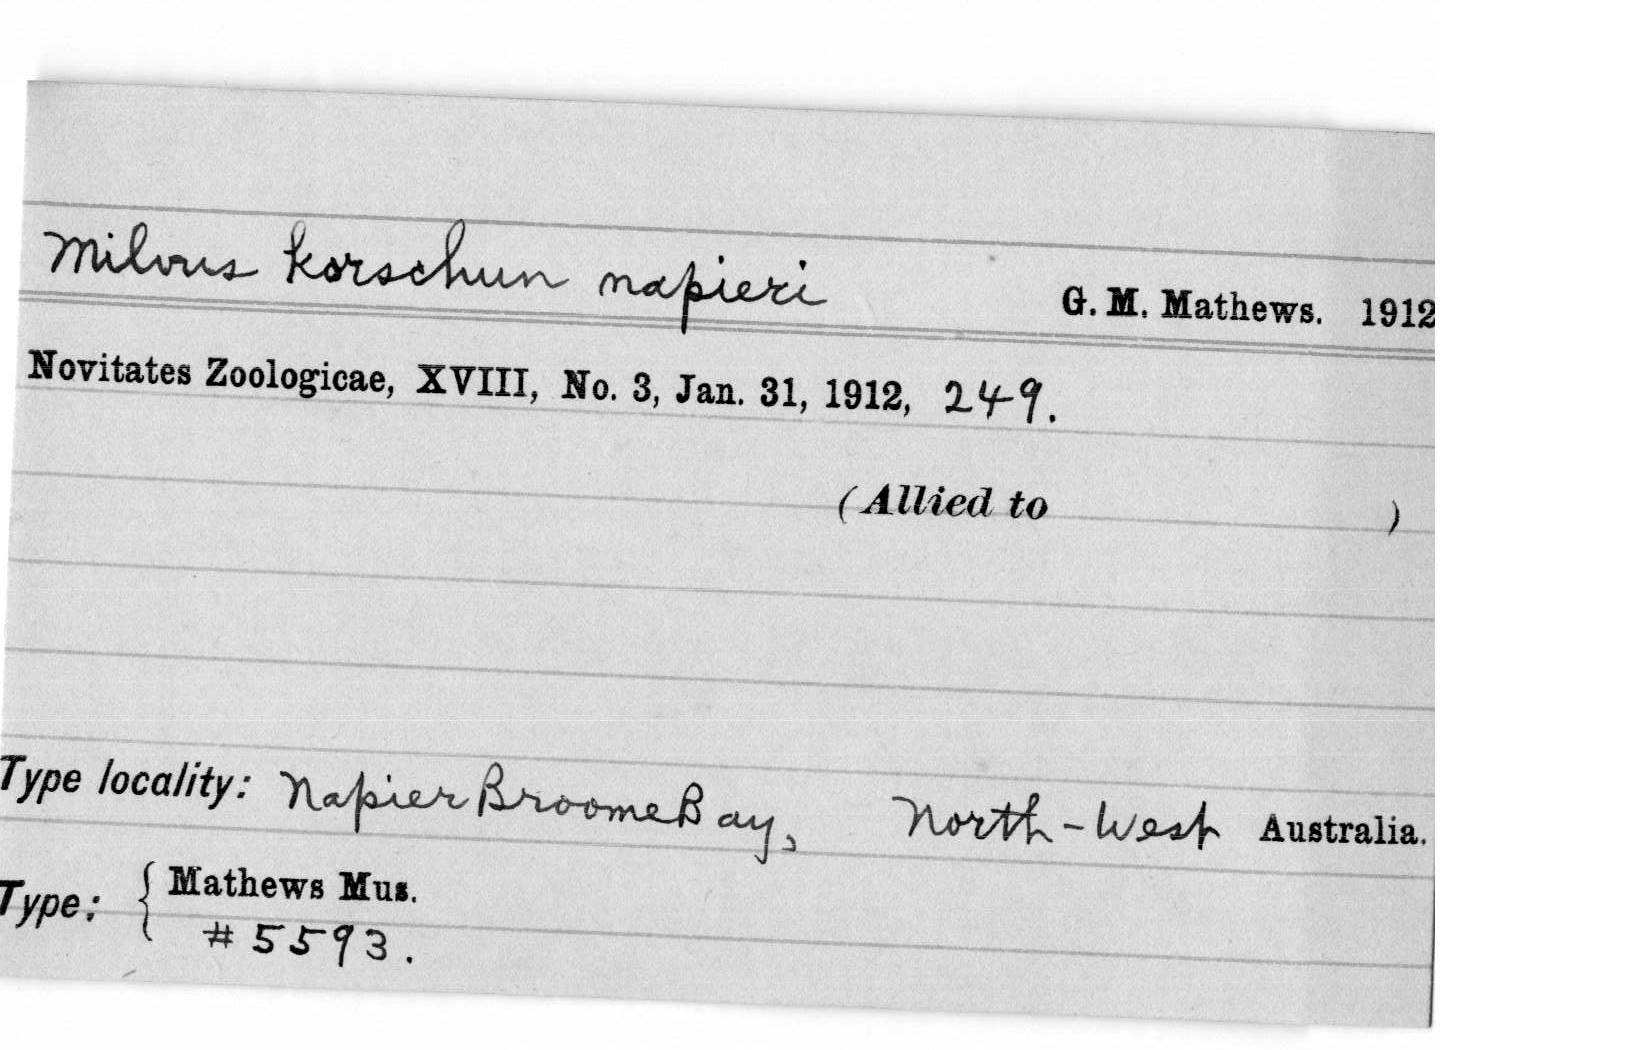 Milvus korschun napieri G. M. Mathews. 1912
Novitates Zoologicae, XVIII, No. 3, Jan. 31, 1912, 249.
(Allied to )
Type locality: Napier Broome Bay, North-West Australia.
Type: { Mathews Mus.
# 5593.